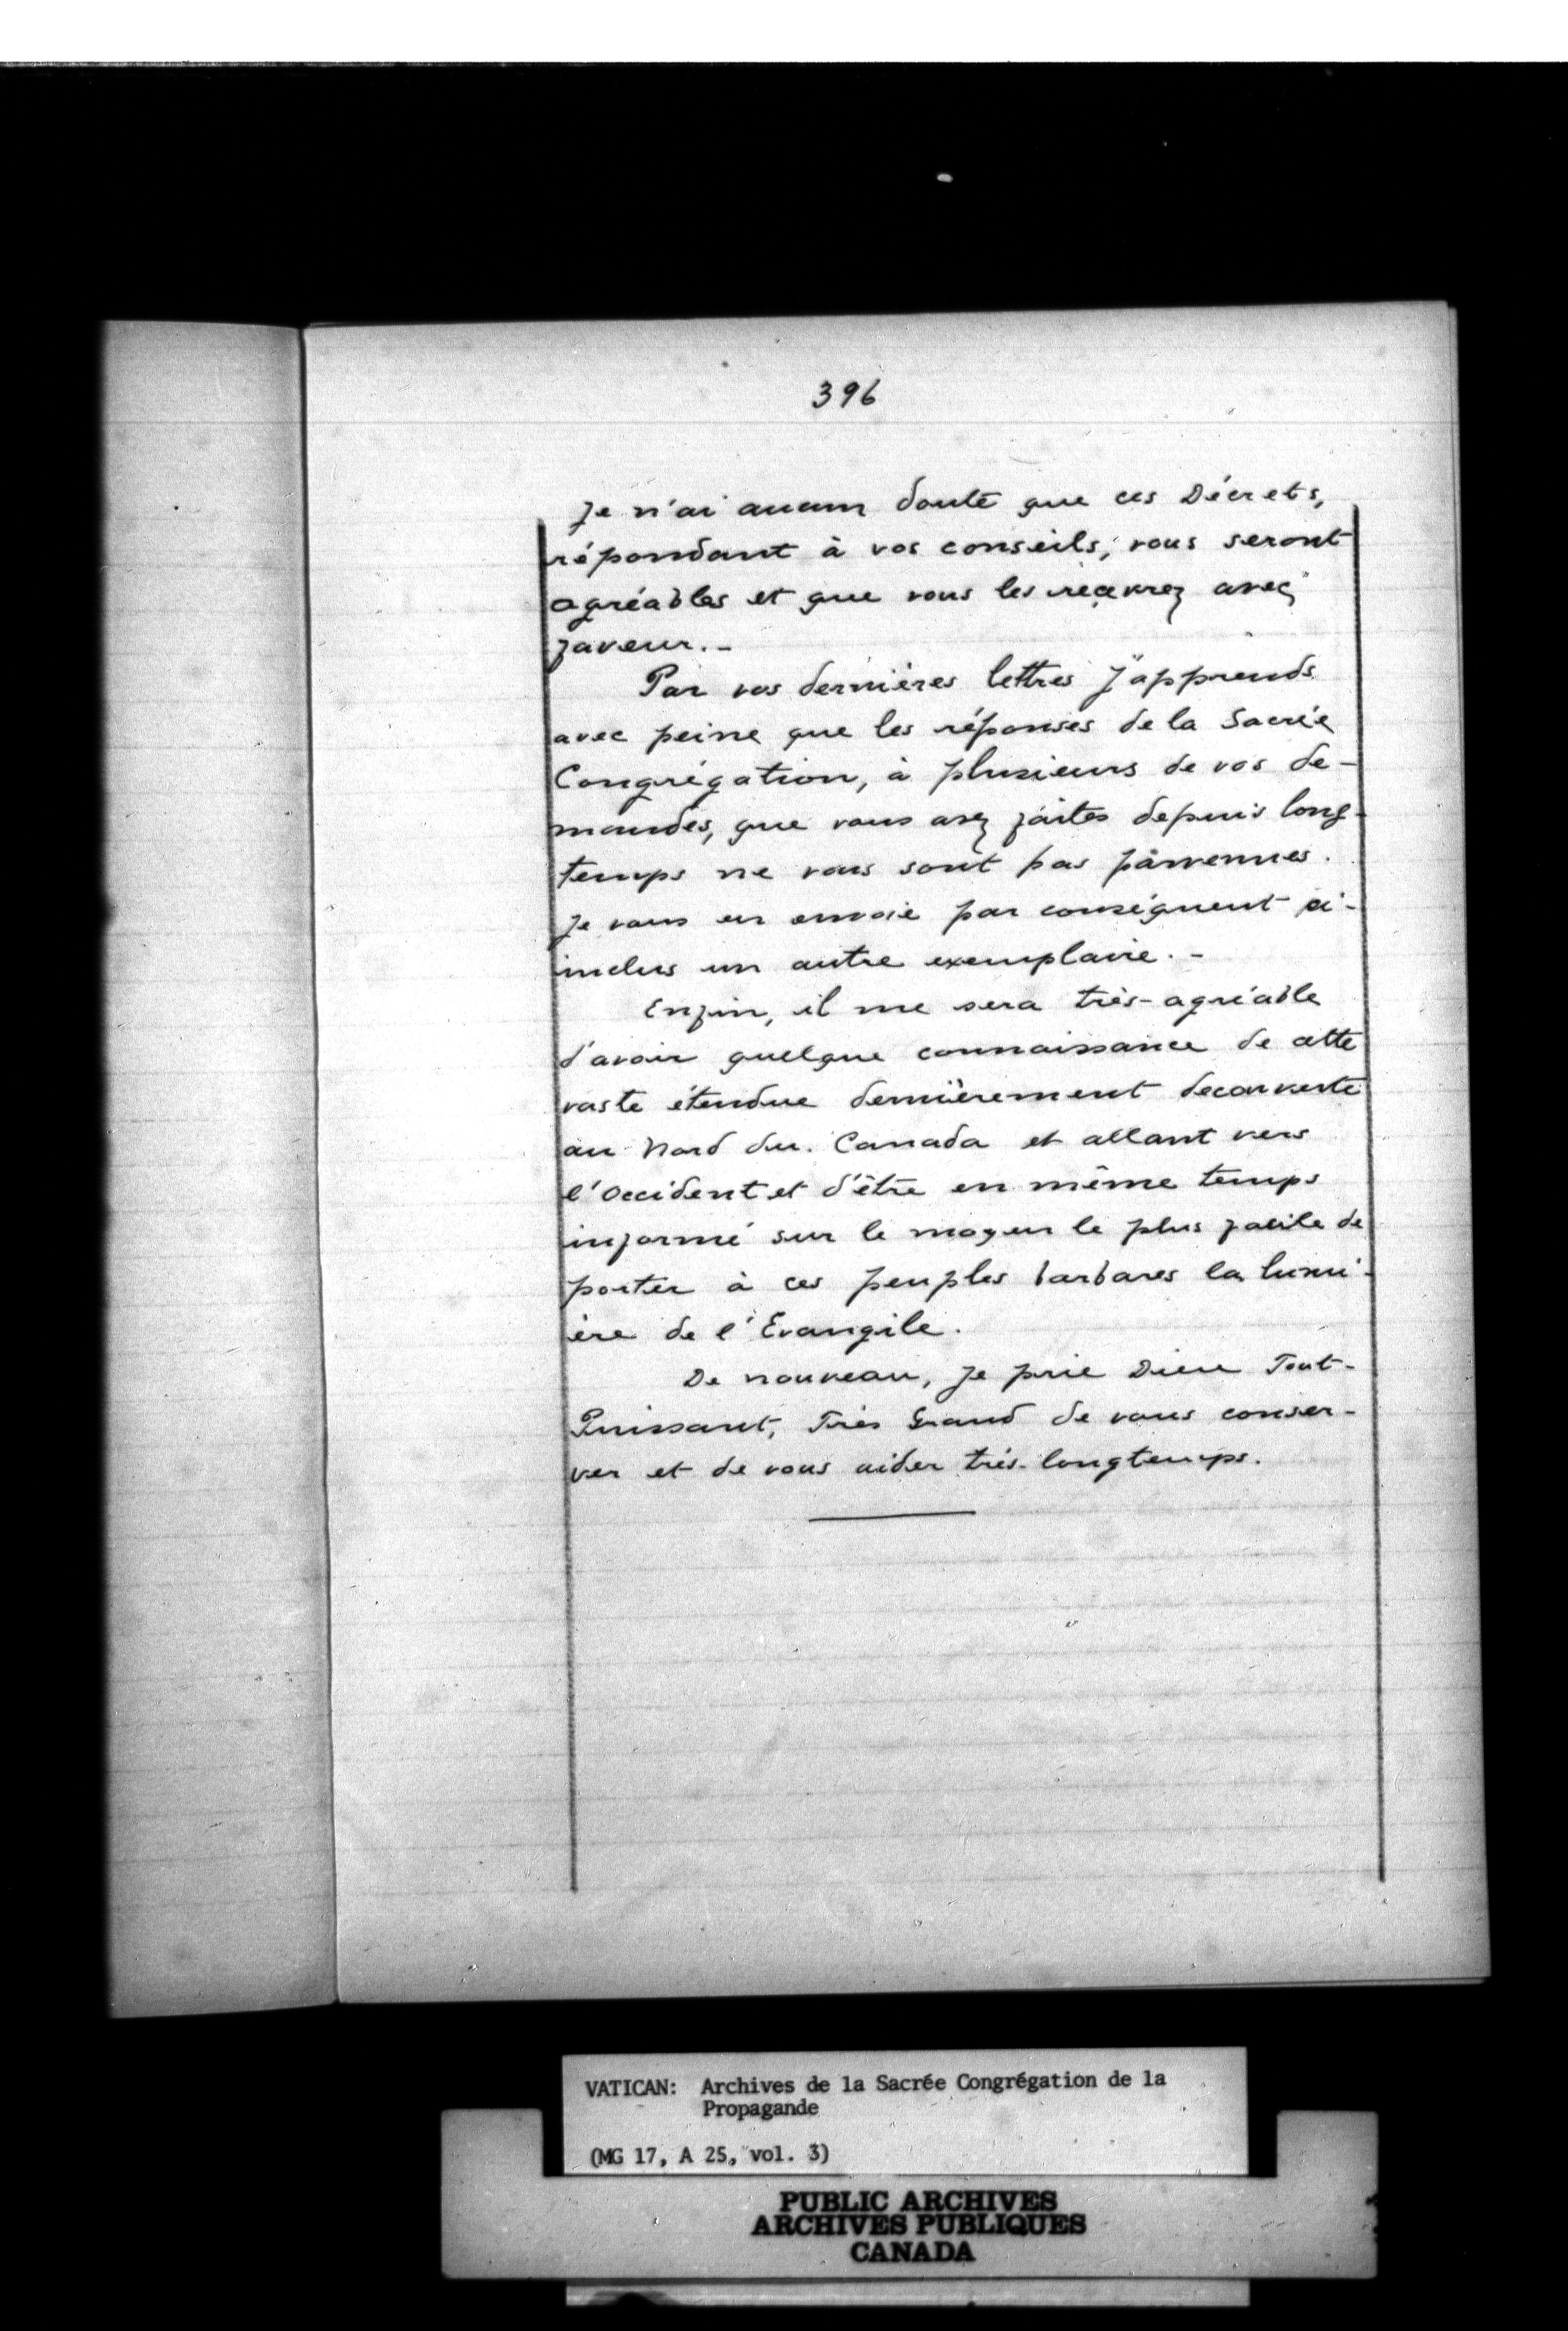 396
Je n'ai aucun doute que ces Décrets,
répondant à vos conseils, vous seront
agréables et que vous les recevrez avec
faveur.-
Par vos dernières lettres j'apprends
avec peine que les réponses de la Sacrée
Congrégation, à plusieurs de vos de-
mandes, que vous avez faites depuis long-
temps ne vous sont pas parvenues.
Je vous en envoie par conséquent ci-
inclus un autre exemplaire.-
Enfin, il me sera très-agréable
d'avoir quelque connaissance de cette
vaste étendue dernièrement decouverte
au Nord du. Canada et allant vers
l'Occident et d'être en même temps
informé sur le moyen le plus facile de
porter à ces peuples barbares la lumi-
ère de l'Evangile.
De nouveau, je prie Dieu Tout-
Puissant, Très Grand de vous conser-
ver et de vous aider très-longtemps.
VATICAN: Archives de la Sacrée Congrégation de la
Propagande
(MG 17, A 25, vol. 3)
PUBLIC ARCHIVES
ARCHIVES PUBLIQUES
CANADA